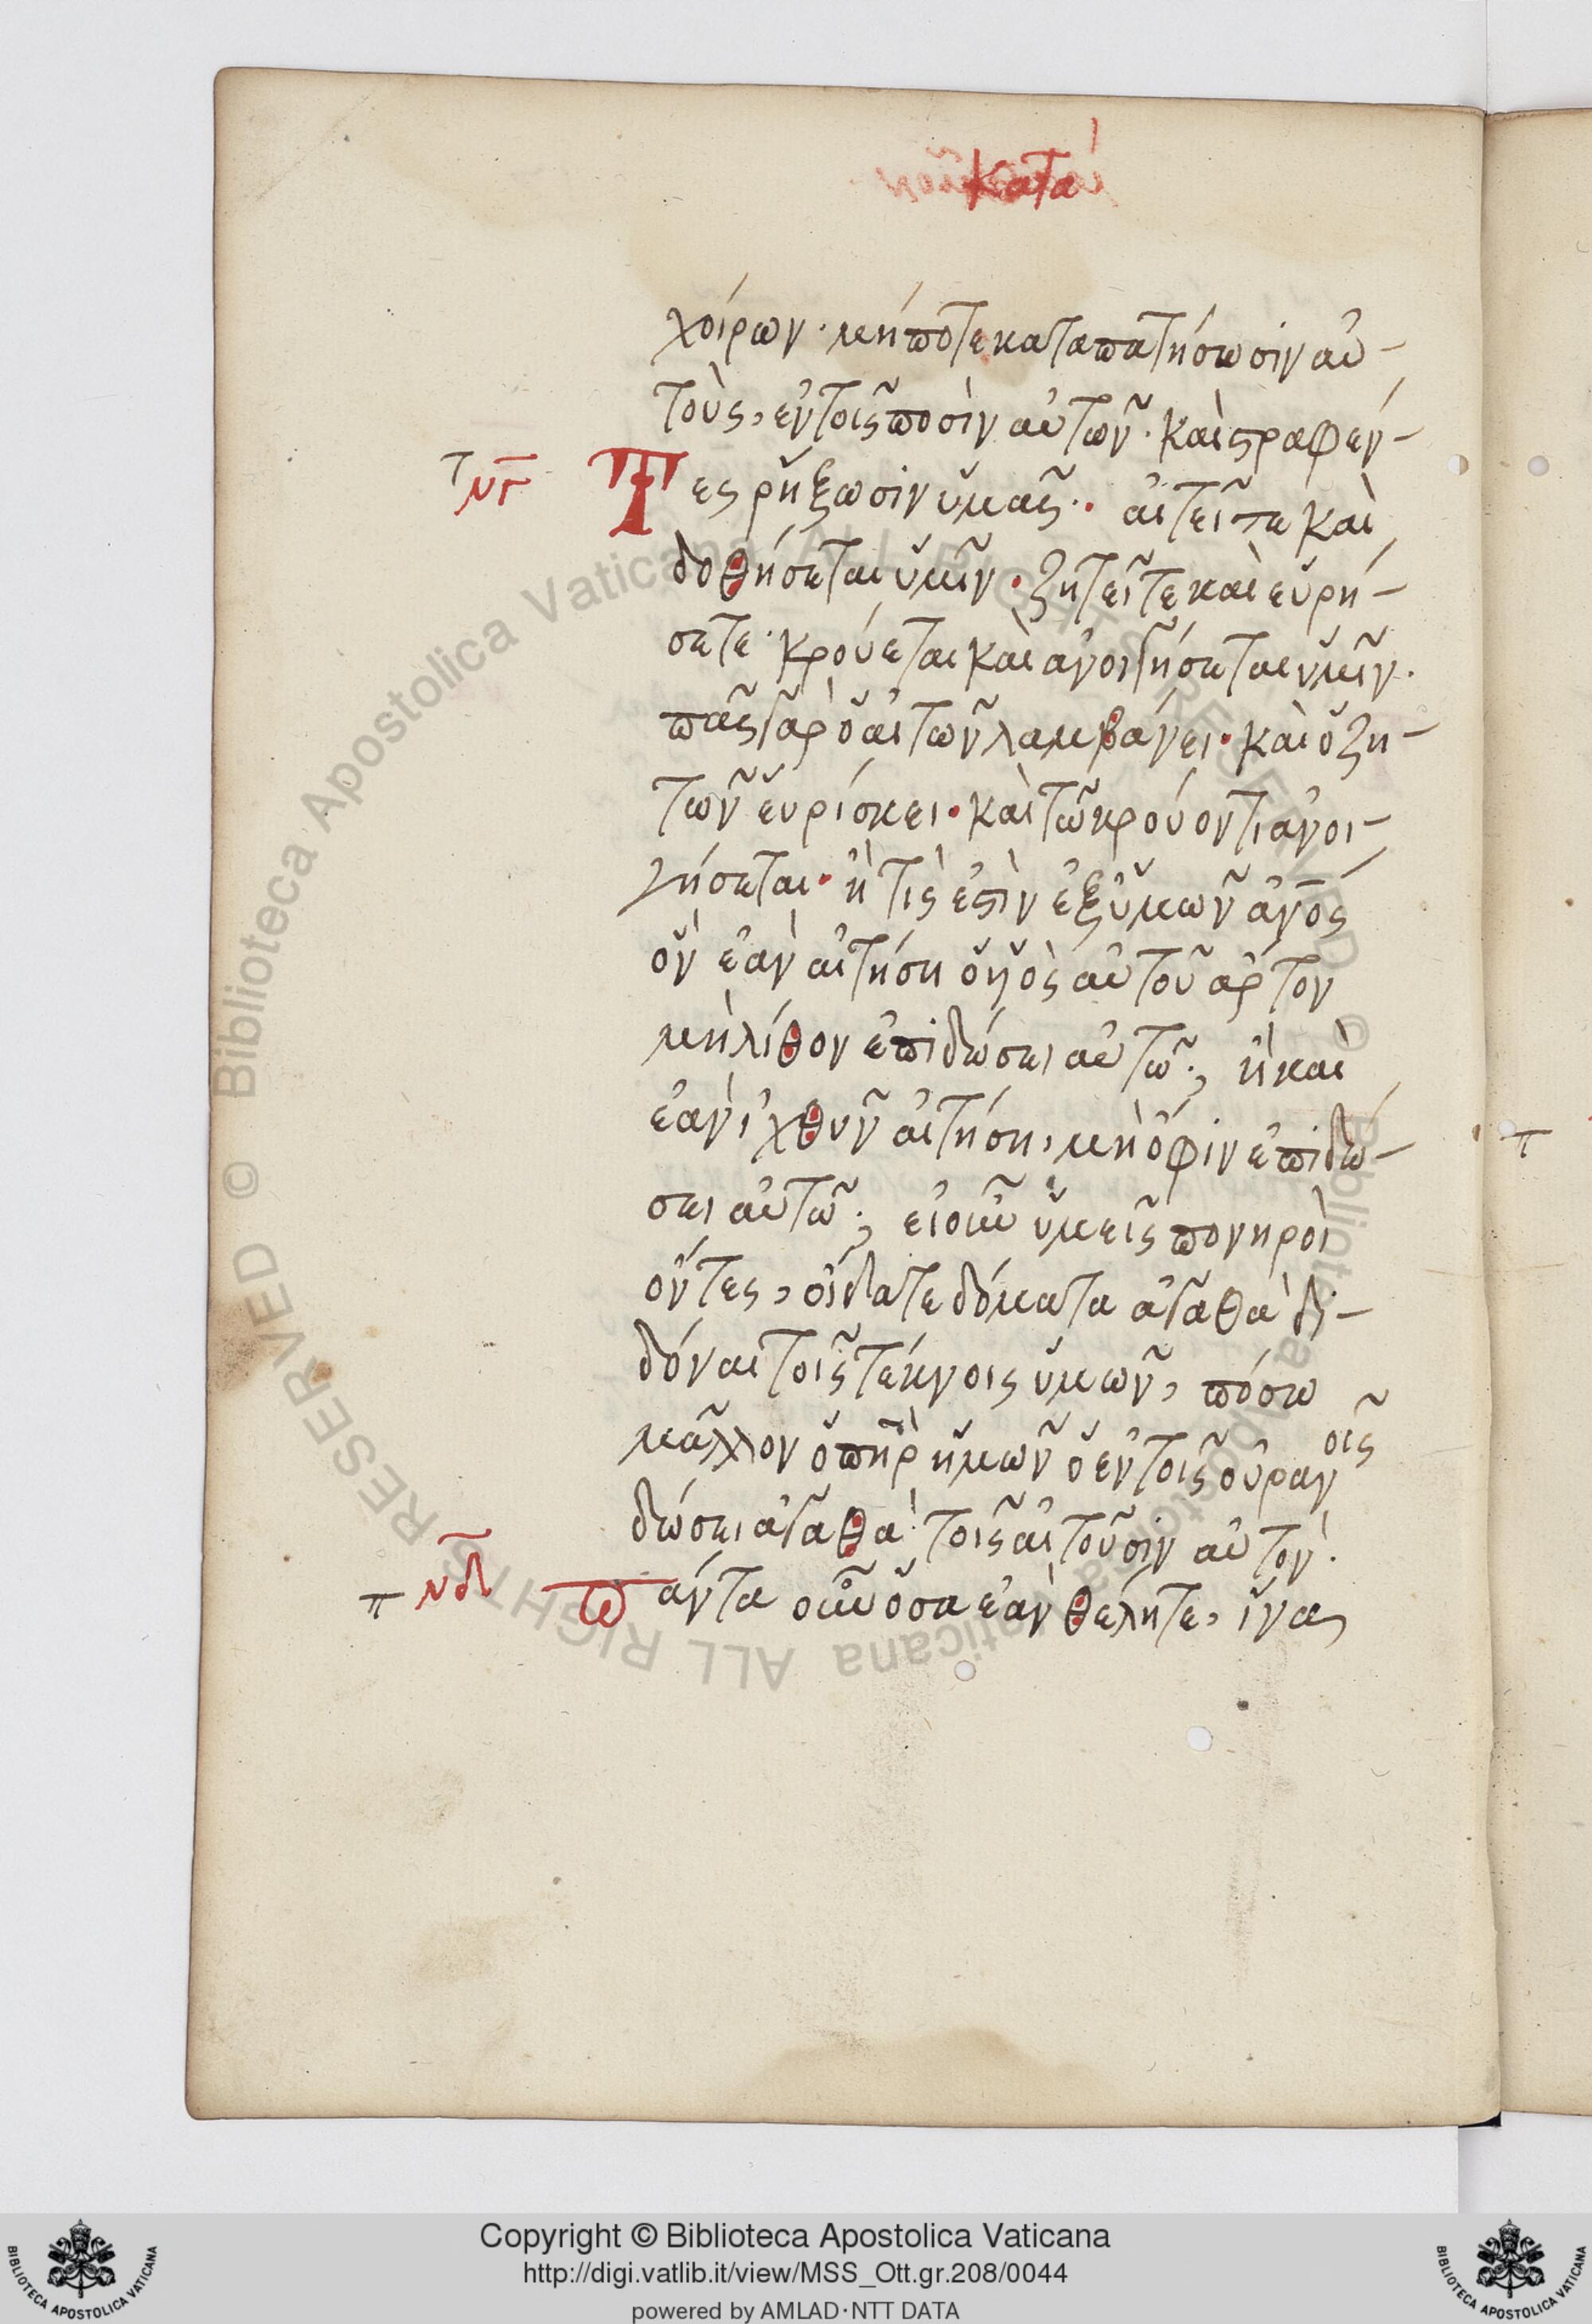 κατὰ
χοίρων· μήποτε καταπατήσωσιν αὐ-
τοὺς, ἐν τοῖς ποσὶν αὐτῶν· καὶ στραφέν-
νγ Τες ῥήξωσιν ὑμᾶς·· αἰτεῖτε καὶ
δοθήσεται ὑμῖν· ζητεῖτε καὶ εὑρή-
σετε· κρούεται καὶ ἀνοιγήσεται ὑμῖν·
πᾶς γὰρ ὁ αἰτῶν λαμβάνει· καὶ ὁ ζη-
τῶν εὑρίσκει· καὶ τῶ κρούοντι ἀνοι-
γήσεται· ἢ τίς ἐστὶν ἐξ ὑμῶν ἄνος
ὃν ἐὰν αἰτήση ὁ υἱὸς αὐτοῦ ἄρτον
μὴ λίθον ἐπιδώσει αὐτῶ; ἢ καὶ
ἐὰν ἰχθῦν αἰτήση, μὴ ὄφιν ἐπιδώ-
σει αὐτῶ; εἰ οὖν ὑμεῖς πονηροὶ
ὄντες, οἴδατε δόματα ἀγαθὰ δι-
δόναι τοῖς τέκνοις ὑμῶν, πόσω
μᾶλλον ὁ πηρ ἡμῶν ὁ ἐν τοῖς οὐρανοῖς
δώσει ἀγαθὰ τοῖς αἰτοῦσιν αὐτόν·
π νδ Πάντα οὖν ὅσα ἐὰν θέλητε, ἵνα
Copyright © Biblioteca Apostolica Vaticana
http://digi.vatlib.it/view/MSS_Ott.gr.208/0044
powered by AMLAD·NTT DATA